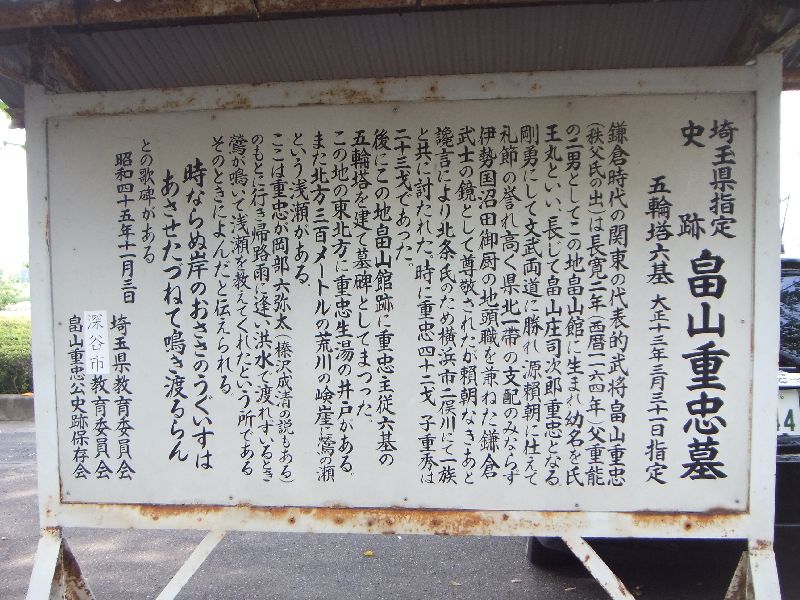 埼玉県指定
史跡
畠山重忠墓
五輪塔六基 大正十三年三月三十一日指定
鎌倉時代の関東の代表的武将畠山重忠
(秩父氏の出)は長寛二年(西暦一一六四年)父重能
の二男としてこの地畠山館に生まれ幼名を氏
王丸といい、長じて畠山庄司次郎重忠となる
剛勇にして文武両道に勝れ源頼朝に仕えて
礼節の誉れ高く県北一帯の支配のみならず
伊勢国沼田御厨の地頭職を兼ねた鎌倉
武士の鏡として尊敬されたが頼朝なきあと
讒言により北条氏のため横浜市二俣川にて一族
と共に討たれた。時に重忠四十二才、子重秀は
二十三才であった。
後にこの地畠山館跡に重忠主従六基の
五輪塔を建て墓碑としてまつった。
この地の東北方に重忠生湯の井戸がある。
また北方三百メートルの荒川の嶮崖に鶯の瀬
という浅瀬がある。
ここは重忠が岡部六弥太(榛沢成清の説もある)
のもとに行き帰路雨に逢い洪水で渡れずいるとき
鶯が鳴いて浅瀬を教えてくれたという所である
そのときによんだと伝えられる。
時ならぬ岸のおささのうぐいすは
あさせたづねて鳴き渡るらん
との歌碑がある
昭和四十五年十一月三日
埼玉県教育委員会
深谷市教育委員会
畠山重忠公史跡保存会
44